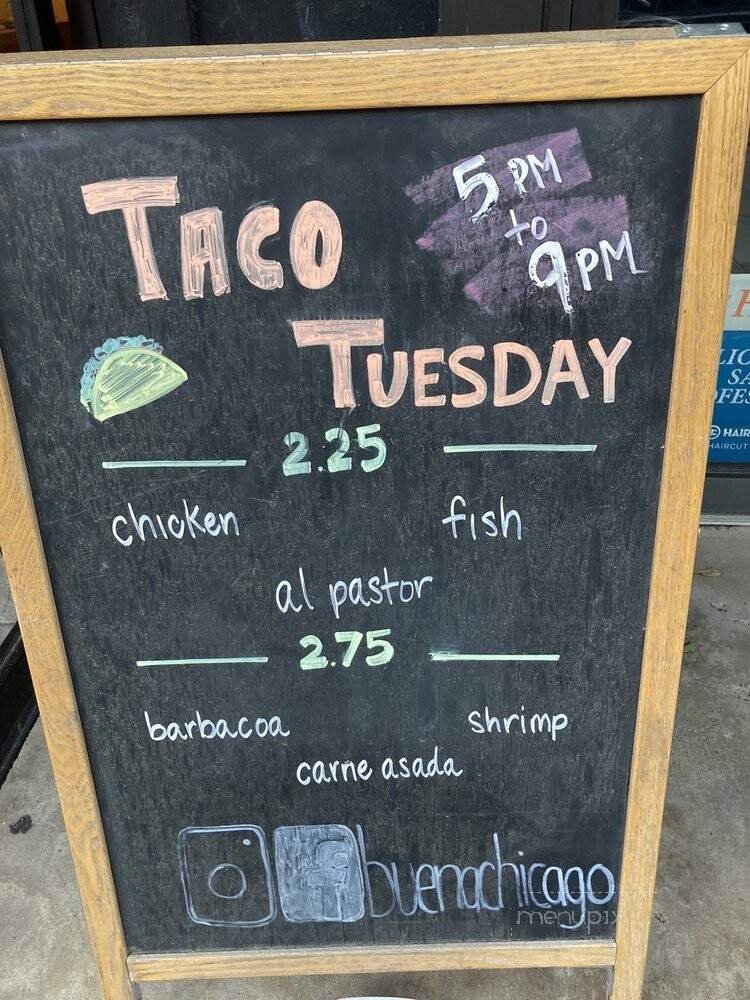 TACO
5 PM
to
9 PM
TUESDAY
2.25
chicken fish
al pastor
2.75
barbacoa shrimp
carne asada
f buenachicago
menupix
HAIR
HAIRCUT